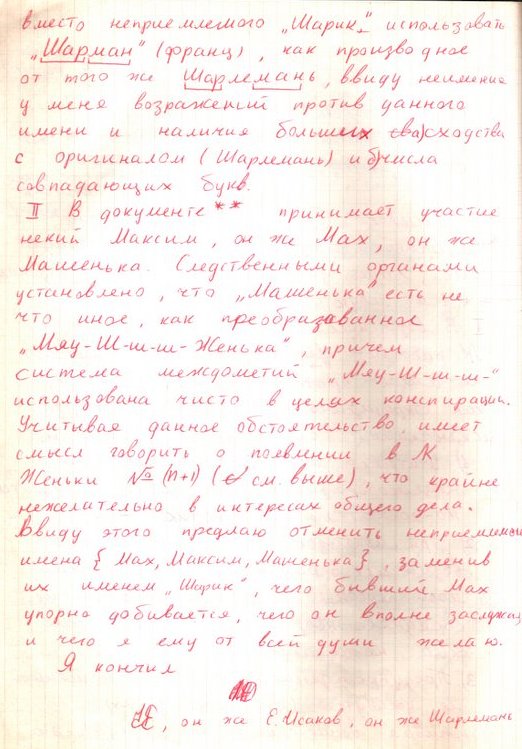 вместо неприемлемого „Шарик“ использовать
„Шарман“ (франц), как производное
от того же Шарлемань, ввиду неимения
у меня возражений против данного
имени и наличия больших а) сходства
с оригиналом (Шарлемань) и б) числа
совпадающих букв.
II В документе ** принимает участие
некий Максим, он же Мах, он же
Машенька. Следственными органами
установлено, что „Машенька“ есть не
что иное, как преобразованное
„Мяу-Ш-ш-ш-Женька“, причем
система междометий „Мяу-Ш-ш-ш-“
использована чисто в целях конспирации.
Учитывая данное обстоятельство, имеет
смысл говорить о появлении в
Женьки № (n+1) (см. выше), что крайне
нежелательно в интересах общего дела.
Ввиду этого предлаю отменить неприемлемые
имена {Мах, Максим, Машенька}, заменив
их именем „Шарик“, чего бывший Мах
упорно добивается, чего он вполне заслужил
и чего я ему от всей души желаю.
Я кончил
, он же Е. Исаков, он же Шарлемань